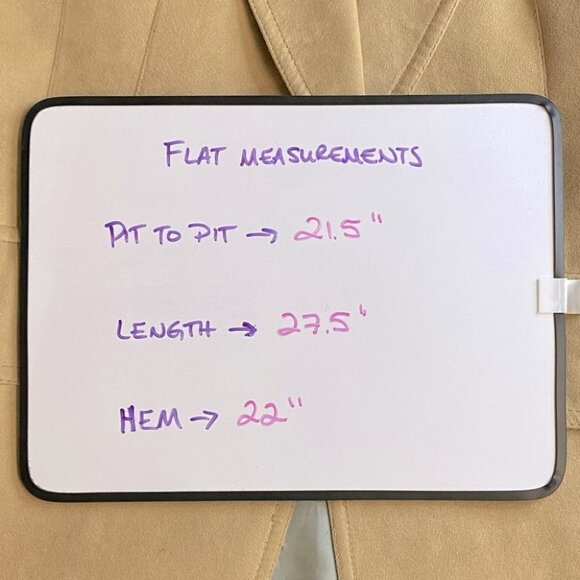 FLAT MEASUREMENTS
PIT TO PIT → 21.5"
LENGTH → 27.5"
HEM → 22"